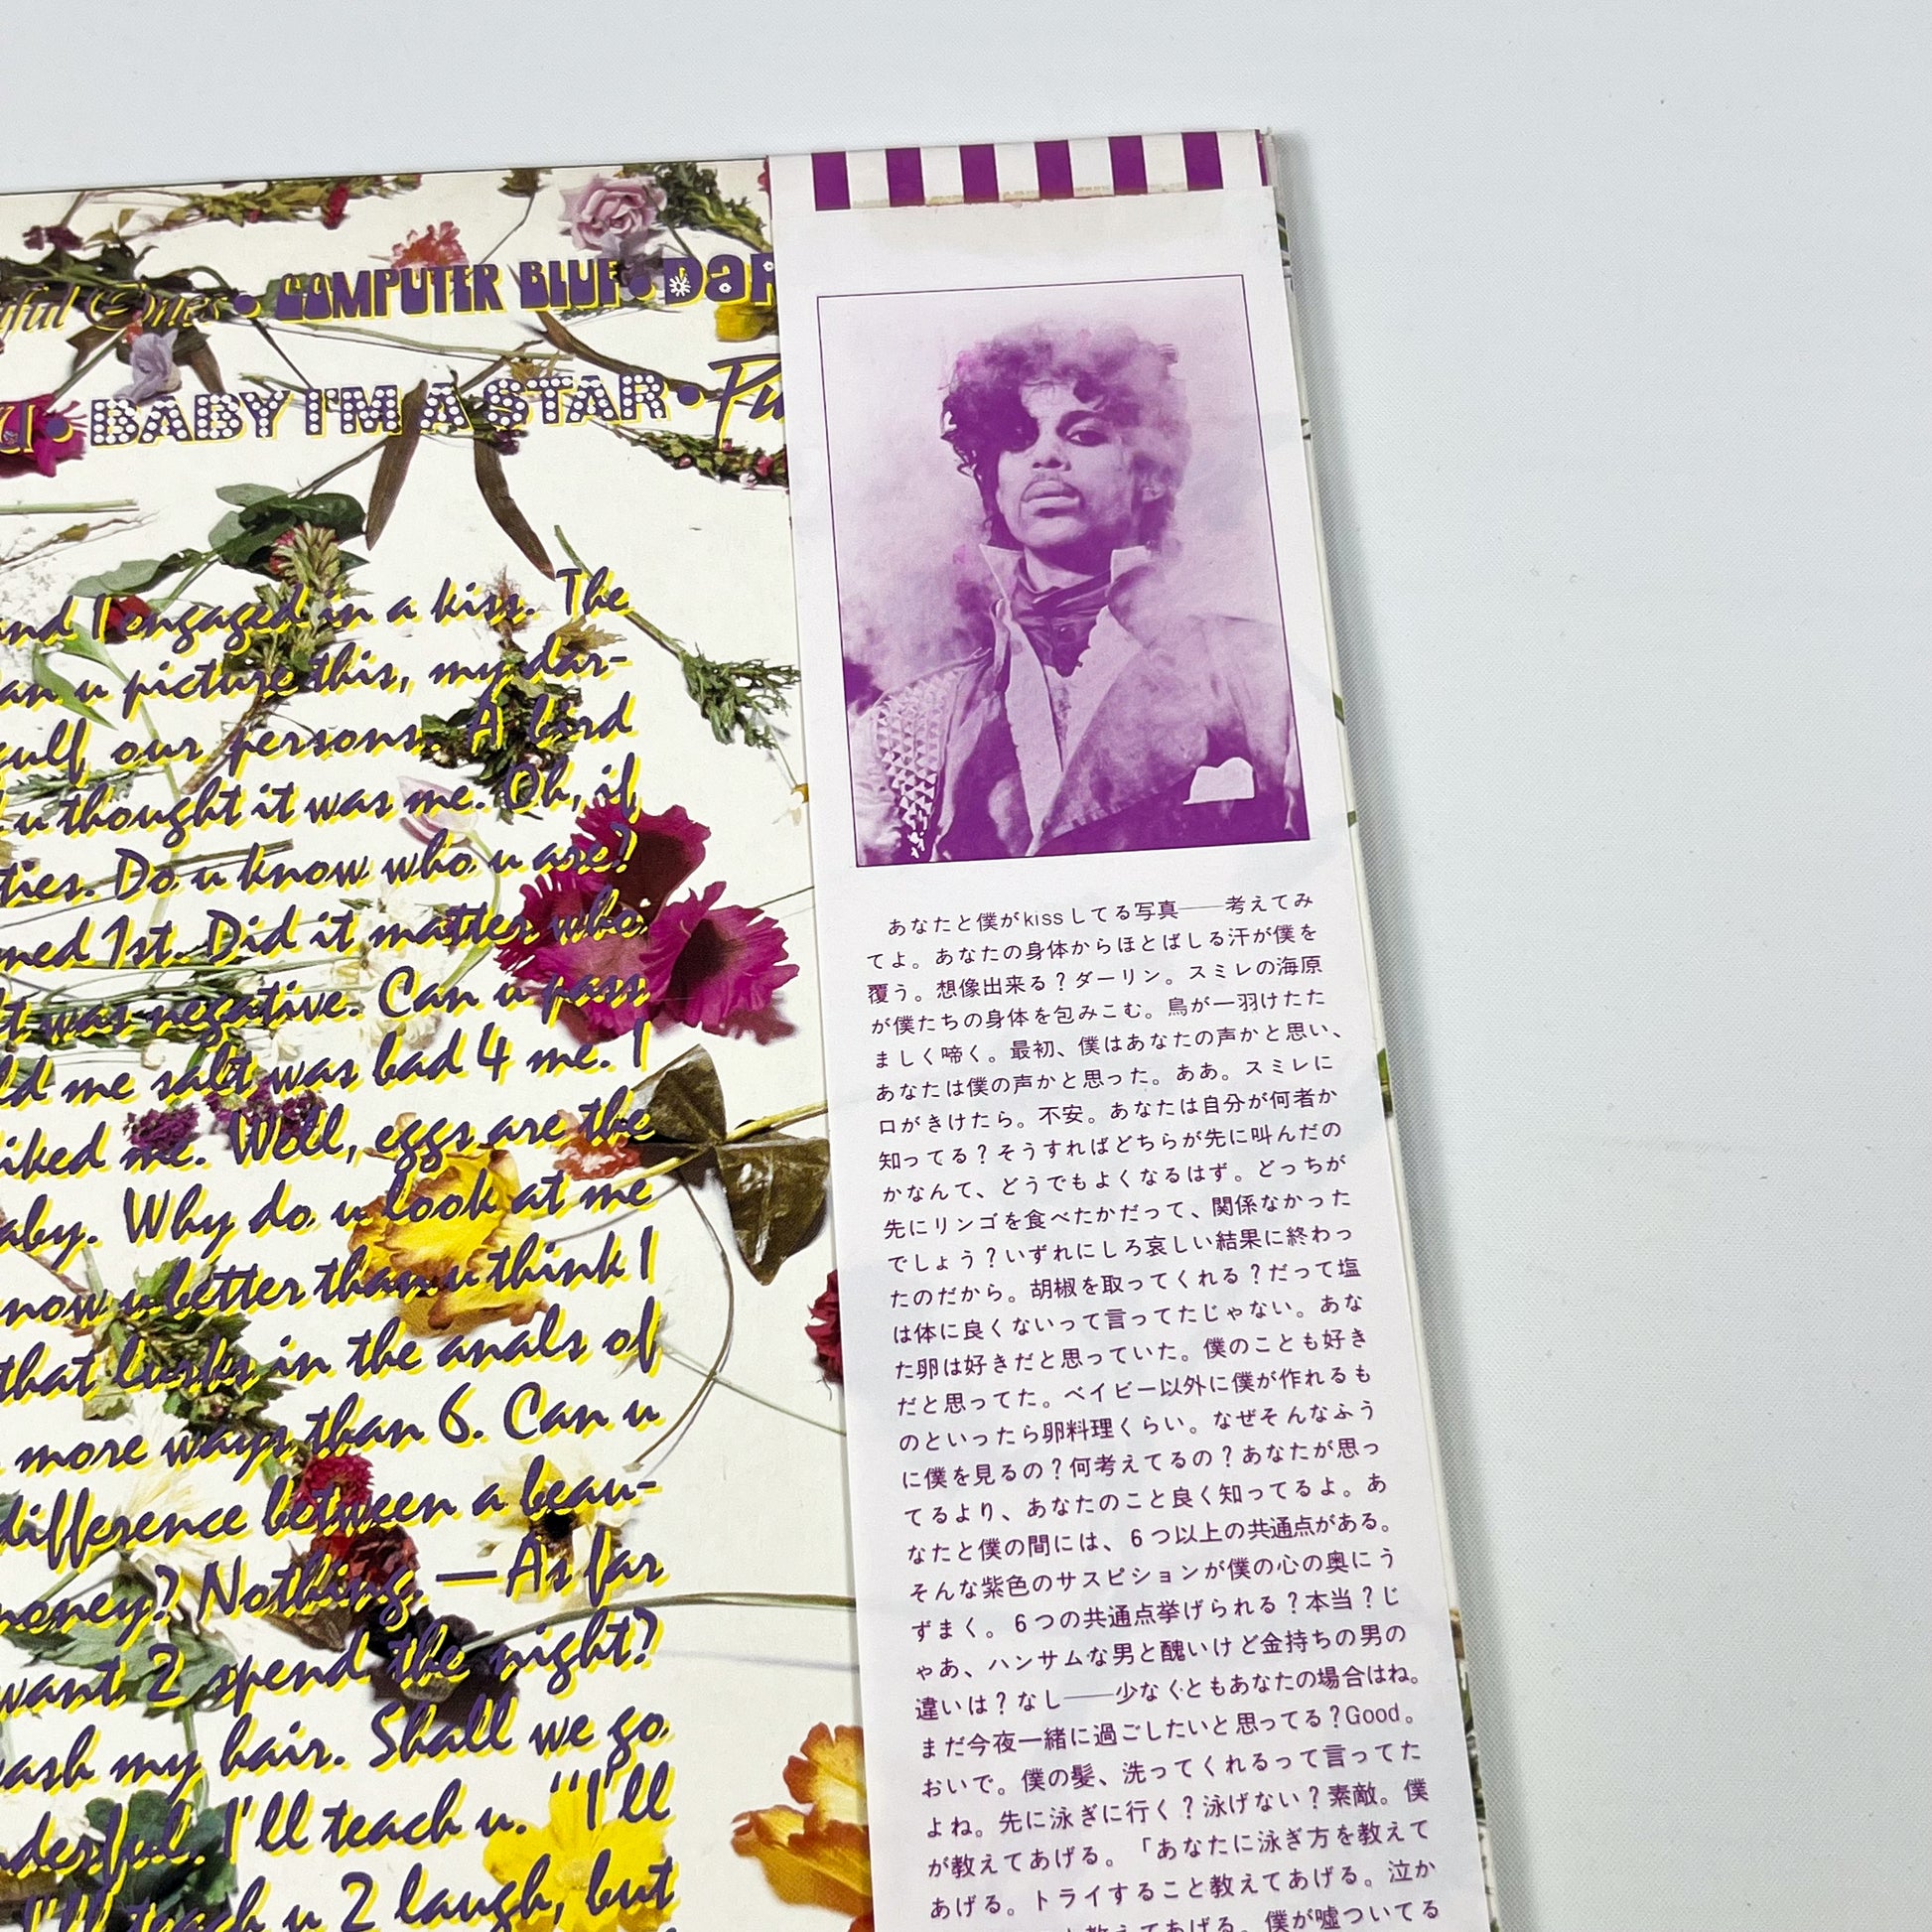 COMPUTER BLUE •
• BABY I'M A STAR •
and I engaged in a kiss. The
an u picture this, my dar-
gulf our persons. A bird
u thought it was me. Oh, if
ties. Do u know who u are?
med 1st. Did it matter who
t was negative. Can u pass
ld me salt was bad 4 me. I
iked me. Well, eggs are the
aby. Why do u look at me
now u better than u think I
that lurks in the anals of
more ways than 6. Can u
difference between a beau-
money? Nothing. — As far
want 2 spend the night?
ash my hair. Shall we go
derful. I'll teach u. "I'll
I'll teach u 2 laugh, but
あなたと僕がkissしてる写真――考えてみ
てよ。あなたの身体からほとばしる汗が僕を
覆う。想像出来る？ダーリン。スミレの海原
が僕たちの身体を包みこむ。鳥が一羽けたた
ましく啼く。最初、僕はあなたの声かと思い、
あなたは僕の声かと思った。ああ。スミレに
口がきけたら。不安。あなたは自分が何者か
知ってる？そうすればどちらが先に叫んだの
かなんて、どうでもよくなるはず。どっちが
先にリンゴを食べたかだって、関係なかった
でしょう？いずれにしろ哀しい結果に終わっ
たのだから。胡椒を取ってくれる？だって塩
は体に良くないって言ってたじゃない。あな
た卵は好きだと思っていた。僕のことも好き
だと思ってた。ベイビー以外に僕が作れるも
のといったら卵料理くらい。なぜそんなふう
に僕を見るの？何考えてるの？あなたが思っ
てるより、あなたのこと良く知ってるよ。あ
なたと僕の間には、6つ以上の共通点がある。
そんな紫色のサスピションが僕の心の奥にう
ずまく。6つの共通点挙げられる？本当？じ
ゃあ、ハンサムな男と醜いけど金持ちの男の
違いは？なし――少なくともあなたの場合はね。
まだ今夜一緒に過ごしたいと思ってる？Good。
おいで。僕の髪、洗ってくれるって言ってた
よね。先に泳ぎに行く？泳げない？素敵。僕
が教えてあげる。「あなたに泳ぎ方を教えて
あげる。トライすること教えてあげる。泣か
教えてあげる。僕が嘘ついてる